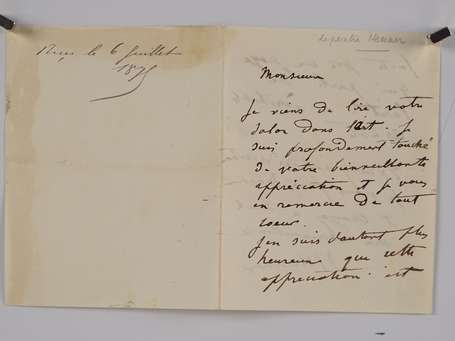 le 6 juillet
1875
le peintre Henner
Monsieur
Je viens de lire votre
Salon dans l'Art. Je
suis profondement touché
de votre bienveillante
appréciation et je vous
en remercie de tout
coeur.
J'en suis d'autant plus
heureux que cette
appreciation est